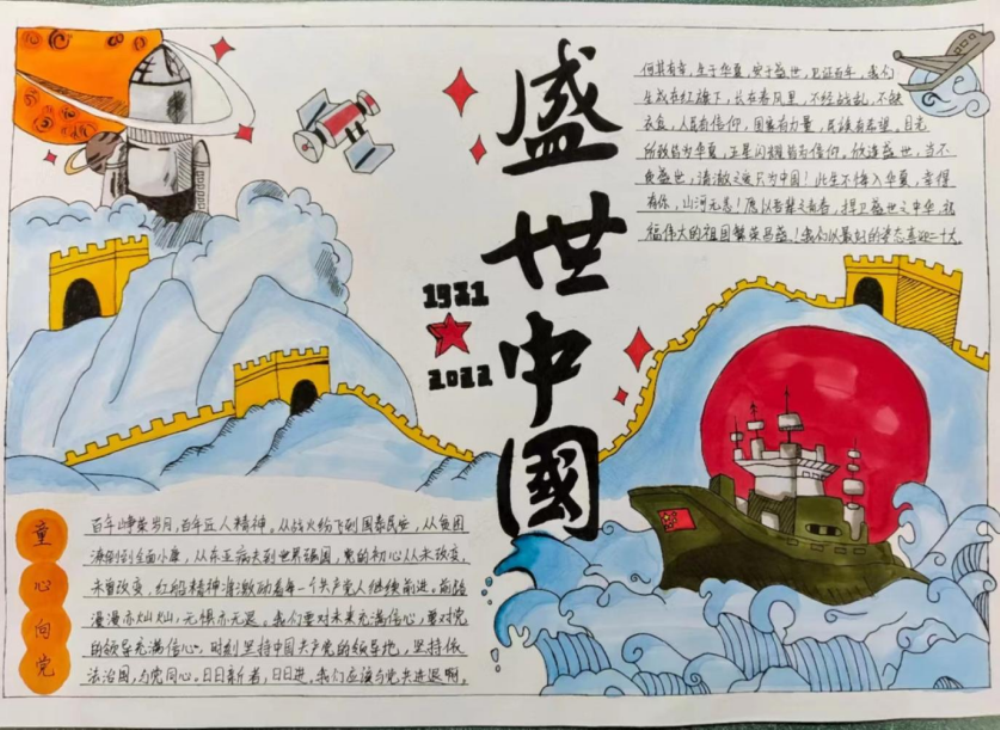 盛世中國
1921
2022
何其有幸,生于华夏,安于盛世,见证百年,我们
生成在红旗下,长在春风里,不经战乱,不缺
衣食,人民有信仰,国家有力量,民族有希望,目光
所致皆为华夏,五星闪耀皆为信仰,欣逢盛世,当不
负盛世,清澈之爱只为中国!此生不悔入华夏,幸得
有你,山河无恙!愿以吾辈之青春,捍卫盛世之中华,祝
福伟大的祖国繁荣昌盛!我们以最好的姿态喜迎二十大。
童心向党
百年峥荣岁月,百年匠人精神。从战火纷飞到国泰民安,从贫困
潦倒到全面小康,从东亚病夫到世界强国,党的初心从未改变,
未曾改变,红船精神激励着每一个共产党人继续前进,前路
漫漫亦灿灿,无惧亦无退。我们要对未来充满信心,要对党
的领导充满信心。时刻坚持中国共产党的领导地,坚持依
法治国,为党同心。日日新者,日日进。我们应该与党共进退啊。